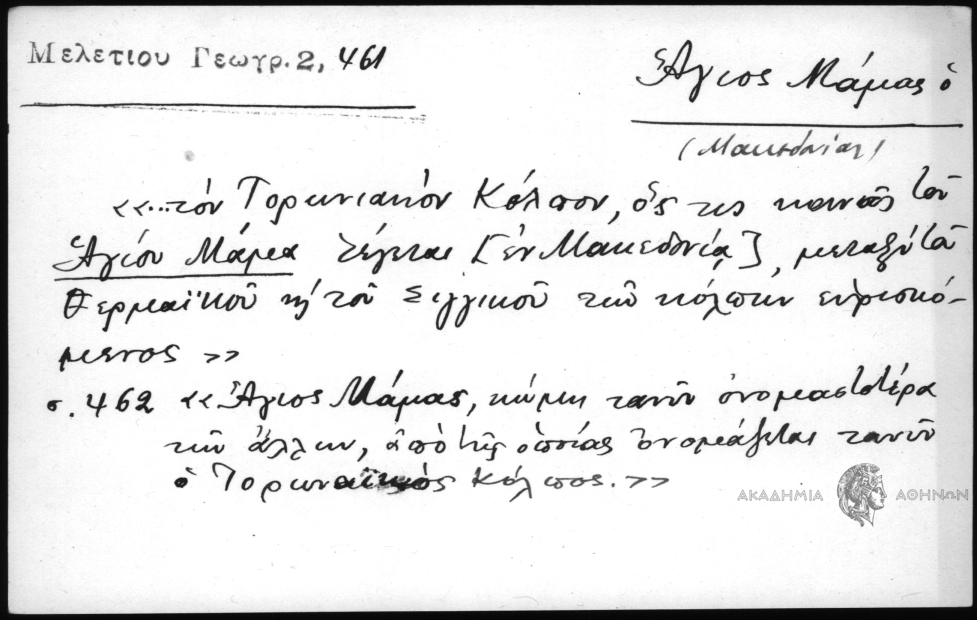 Μελετίου Γεωγρ. 2, 461
Ἅγιος Μάμας ὁ
(Μακεδονίας)
«...τὸν Τορωνιακὸν Κόλπον, ὃς τις κοινῶς τοῦ
Ἁγίου Μάμα λέγεται [ἐν Μακεδονίᾳ], μεταξὺ τοῦ
Θερμαϊκοῦ κ' τοῦ Σιγγικοῦ τῶν κόλπων εὑρισκό-
μενος»
σ. 462 «Ἅγιος Μάμας, κώμη τανῦν ὀνομαστοτέρα
τῶν ἄλλων, ἀπὸ τῆς ὁποίας ὀνομάζεται τανῦν
ὁ Τορωναϊκὸς Κόλπος.»
ΑΚΑΔΗΜΙΑ ΑΘΗΝΩΝ